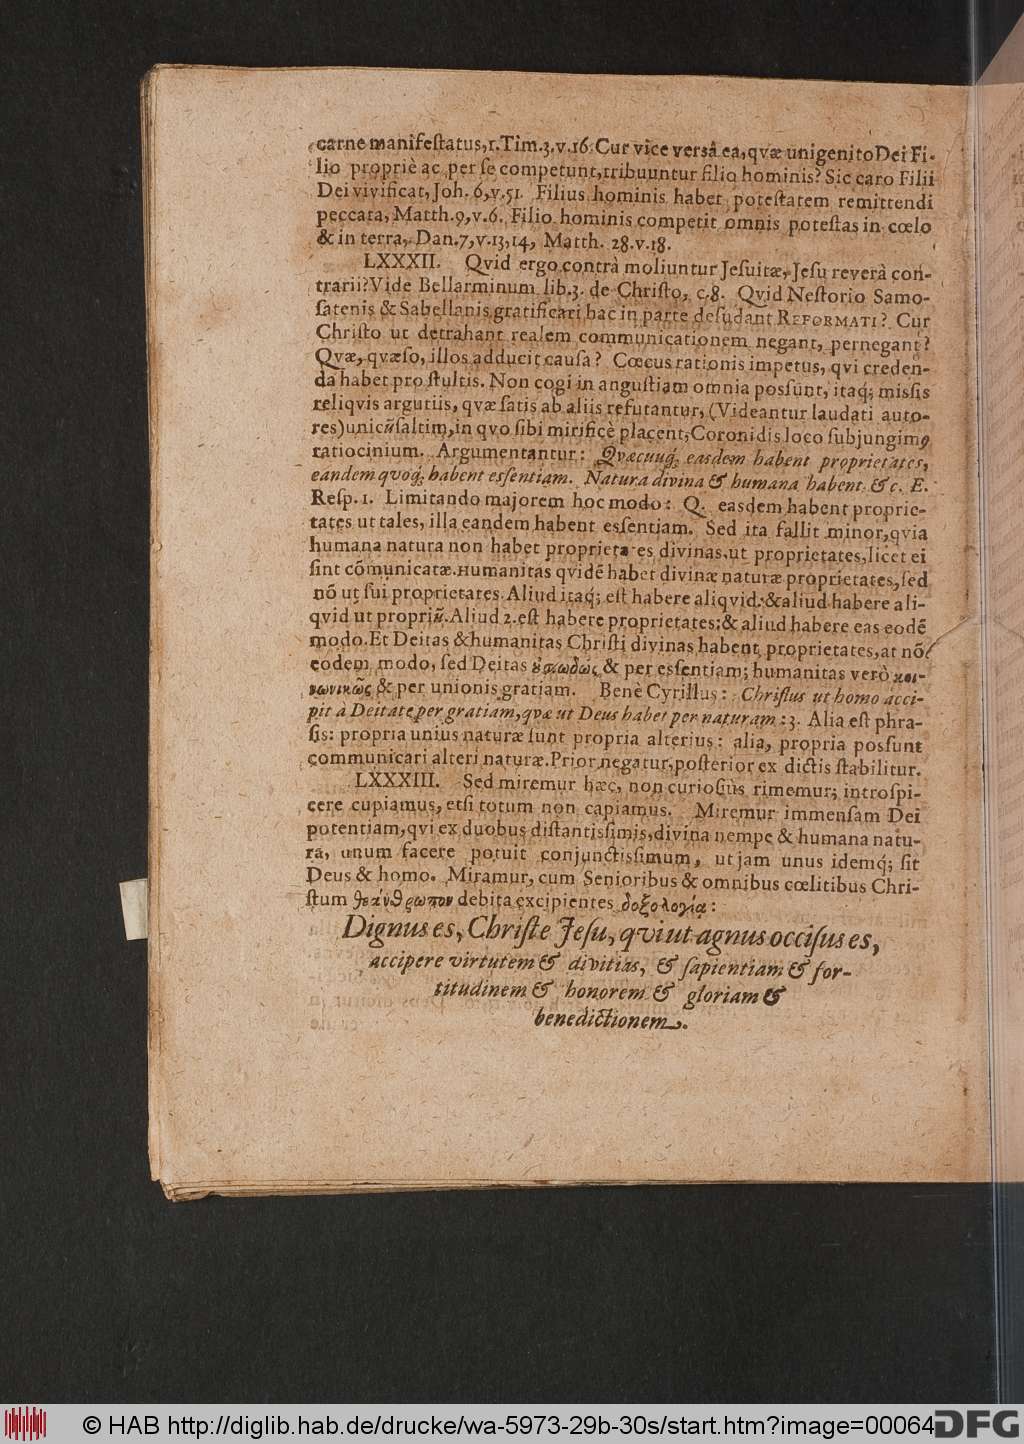 carne manifeſtatus, 1. Tim. 3. v. 16. Cur vice versâ ea, qvæ unigenito Dei Fi-
lio propriè ac per ſe competunt, tribuuntur filio hominis? Sic caro Filii
Dei vivificat, Joh. 6, v. 51. Filius hominis habet poteſtatem remittendi
peccata, Matth. 9, v. 6. Filio hominis competit omnis poteſtas in cœlo
& in terra, Dan. 7, v. 13, 14, Matth. 28. v. 18.
LXXXII. Qvid ergo contrà moliuntur Jeſuitæ, Jeſu reverà con-
trarii? Vide Bellarminum lib. 3. de Chriſto, c. 8. Qvid Neſtorio Samo-
ſatenis & Sabellanis gratificari hac in parte deſudant REFORMATI? Cur
Chriſto ut detrahant realem communicationem negant, pernegant?
Qvæ, qvæſo, illos adducit cauſa? Cœcus rationis impetus, qvi creden-
da habet pro ſtultis. Non cogi in anguſtiam omnia poſſunt, itaq; miſſis
reliqvis argutiis, qvæ ſatis ab aliis refutantur, (Videantur laudati auto-
res) unicũ ſaltim, in qvo ſibi mirificè placent, Coronidis loco ſubjungimꝰ
ratiocinium. Argumentantur: Qvæcuuq; easdem habent proprietates,
eandem quoq; habent eſſentiam. Natura divina & humana habent &c. E.
Reſp. 1. Limitando majorem hoc modo: Q. easdem habent proprie-
tates ut tales, illa eandem habent eſſentiam. Sed ita fallit minor, qvia
humana natura non habet proprietates divinas, ut proprietates, licet ei
ſint cõmunicatæ. Humanitas qvidẽ habet divinæ naturæ proprietates, ſed
nõ ut ſui proprietates. Aliud itaq; eſt habere aliqvid: & aliud habere ali-
qvid ut propriũ. Aliud 2. eſt habere proprietates; & aliud habere eas eodẽ
modo. Et Deitas & humanitas Chriſti divinas habent proprietates, at nõ
eodem modo, ſed Deitas ὀσιωδῶς & per eſſentiam; humanitas verò κοι-
νωνικῶς & per unionis gratiam. Benè Cyrillus: Chriſtus ut homo acci-
pit à Deitate per gratiam, qvæ ut Deus habet per naturam: 3. Alia eſt phra-
ſis: propria unius naturæ ſunt propria alterius: alia, propria poſſunt
communicari alteri naturæ. Prior negatur, poſterior ex dictis ſtabilitur.
LXXXIII. Sed miremur hæc, non curioſiùs rimemur; introſpi-
cere cupiamus, etſi totum non capiamus. Miremur immenſam Dei
potentiam, qvi ex duobus diſtantiſſimis, divina nempe & humana natu-
râ, unum facere potuit conjunctiſſimum, ut jam unus idemq; ſit
Deus & homo. Miramur, cum Senioribus & omnibus cœlitibus Chri-
ſtum θεάνθρωπον debita excipientes δοξολογίᾳ:
Dignus es, Chriſte Jeſu, qvi ut agnus occiſus es,
accipere virtutem & divitias, & ſapientiam & for-
titudinem & honorem & gloriam &
benedictionem.
© HAB http://diglib.hab.de/drucke/wa-5973-29b-30s/start.htm?image=00064
DFG